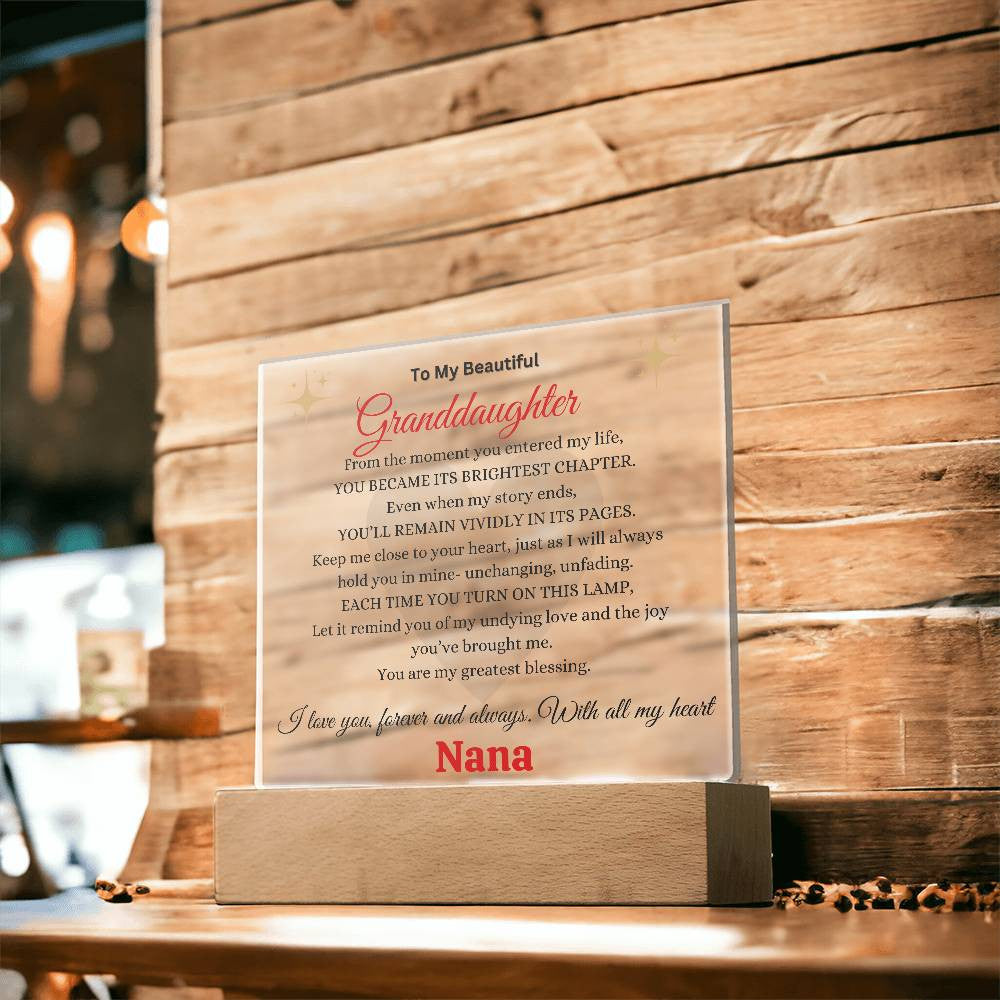 To My Beautiful
Granddaughter
From the moment you entered my life,
YOU BECAME ITS BRIGHTEST CHAPTER.
Even when my story ends,
YOU'LL REMAIN VIVIDLY IN ITS PAGES.
Keep me close to your heart, just as I will always
hold you in mine- unchanging, unfading.
EACH TIME YOU TURN ON THIS LAMP,
Let it remind you of my undying love and the joy
you've brought me.
You are my greatest blessing.
I love you, forever and always. With all my heart
Nana